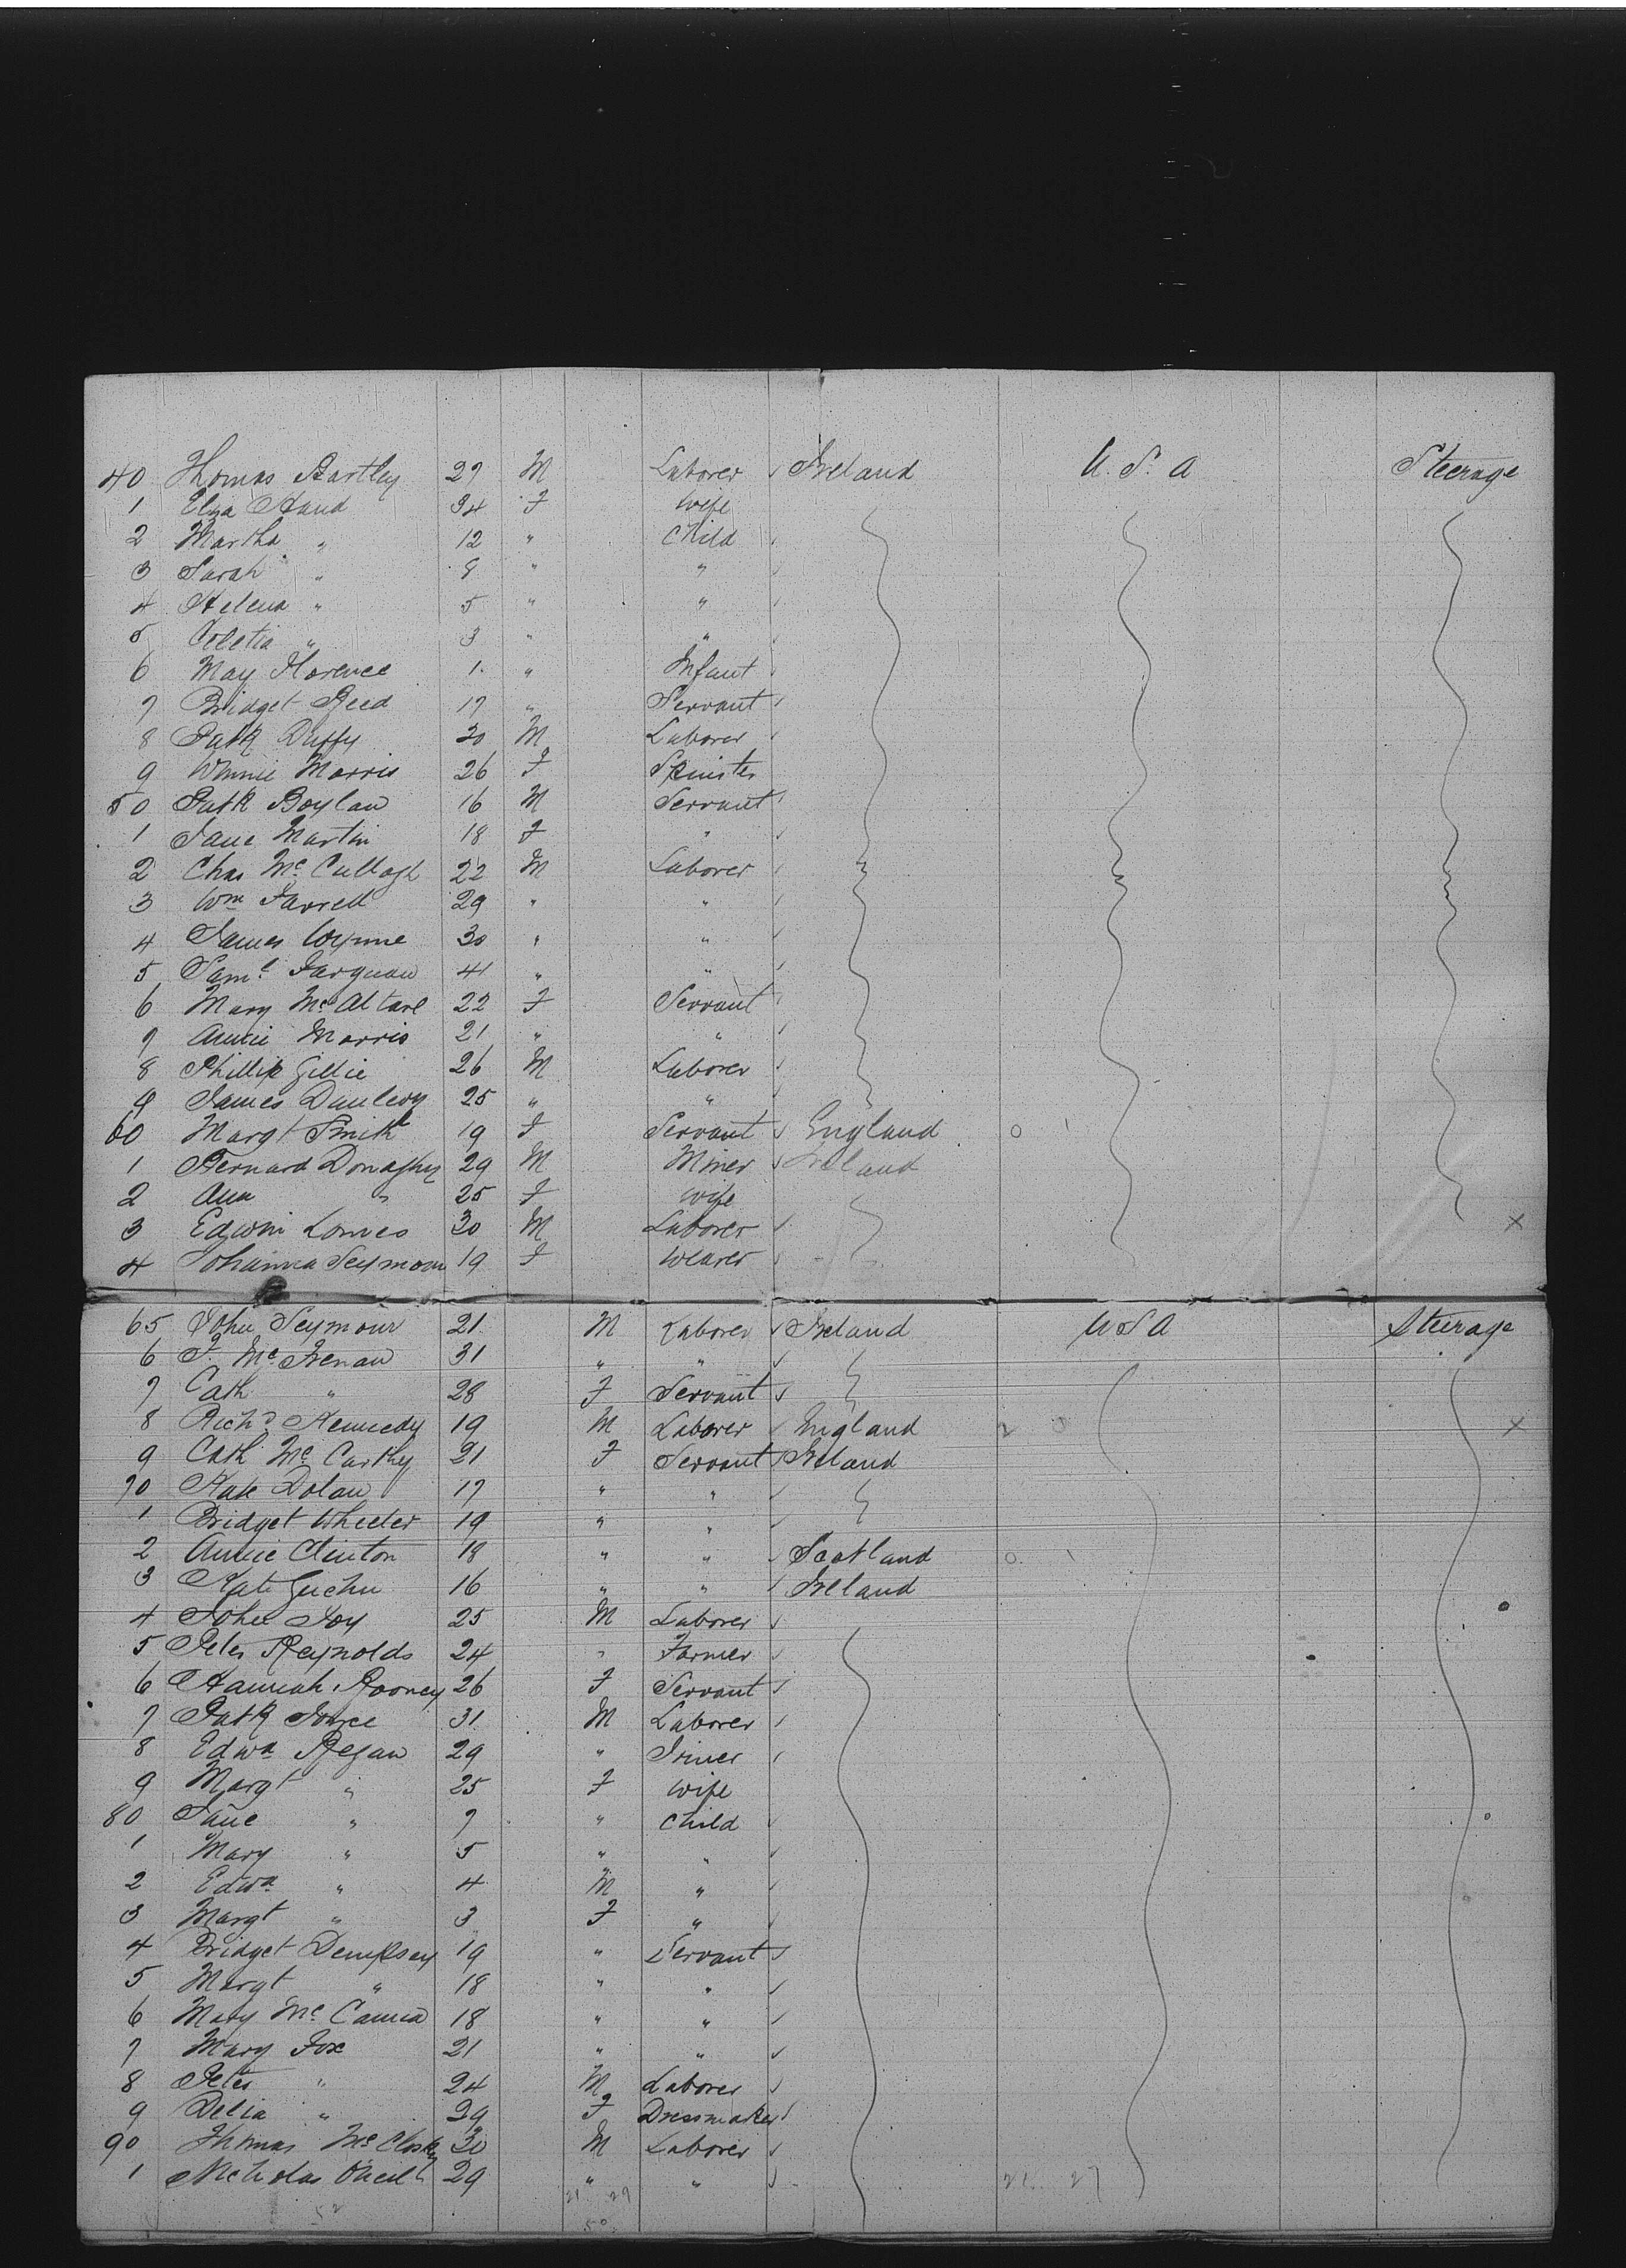 40 Thomas Bartley 27 M Laborer Ireland U.S.A Steerage
1 Eliza Hand 34 F Wife
2 Martha " 12 " Child
3 Sarah " 8 " "
4 Helena " 5 " "
5 " 3 " "
6 May Florence 1 " Infant
7 Bridget Reed 17 " Servant
8 Patk Duffy 30 M Laborer
9 Winnie Morris 26 F Spinster
50 Patk Boylan 16 M Servant
1 Jane Martin 18 F "
2 Chas McCullagh 22 M Laborer
3 Wm Farrell 29 " "
4 James Wynne 30 " "
5 Saml 41 " "
6 Mary 22 F Servant
7 Annie Morris 21 " "
8 Phillip Gillie 26 M Laborer
9 James Dunlevy 25 " "
60 Margt Smith 19 F Servant England 0 1
1 Bernard Donaghy 29 M Miner Ireland
2 Ann " 25 F Wife
3 Edwin Lomes 30 M Laborer X
4 Johanna Seymour 19 F Weaver
65 John Seymour 21 M Laborer Ireland U S A Steerage
6 31 " "
7 Cath " 28 F Servant
8 Richd Kennedy 19 M Laborer England 2 0 X
9 Cath McCarthy 21 F Servant Ireland
70 Kate Dolan 17 " "
1 Bridget Wheeler 19 " "
2 Annie Clinton 18 " " Scotland 0 1
3 Kate 16 " " Ireland
4 John Joy 25 M Laborer
5 Peter Reynolds 24 " Farmer
6 Hannah Rooney 26 F Servant
7 Patk Joyce 31 M Laborer
8 Edwd Regan 29 "
9 Margt " 25 F Wife
80 Jane " 7 " Child
1 Mary " 5 " "
2 Edwd " 4 M "
3 Margt " 3 F "
4 Bridget Dempsey 19 " Servant
5 Margt " 18 " "
6 Mary McCanna 18 " "
7 Mary Fox 21 " "
8 Peter " 24 M Laborer
9 Delia " 29 F Dressmaker
90 Thomas McClosky 30 M Laborer
1 Nicholas Oneill 29 " "
21 29
52 50